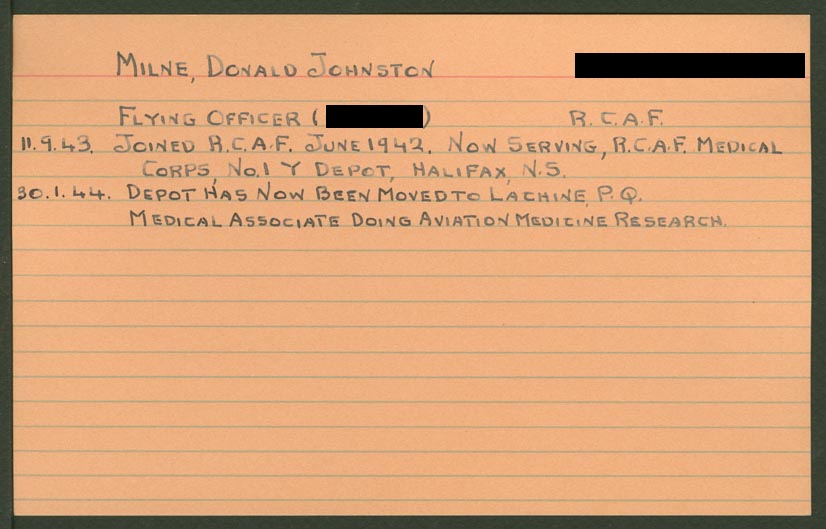 MILNE, DONALD JOHNSTON
FLYING OFFICER ( ) R.C.A.F.
11.9.43. JOINED R.C.A.F. JUNE 1942. NOW SERVING, R.C.A.F. MEDICAL
CORPS, NO.1 Y DEPOT, HALIFAX, N.S.
30.1.44. DEPOT HAS NOW BEEN MOVED TO LACHINE, P.Q.
MEDICAL ASSOCIATE DOING AVIATION MEDICINE RESEARCH.